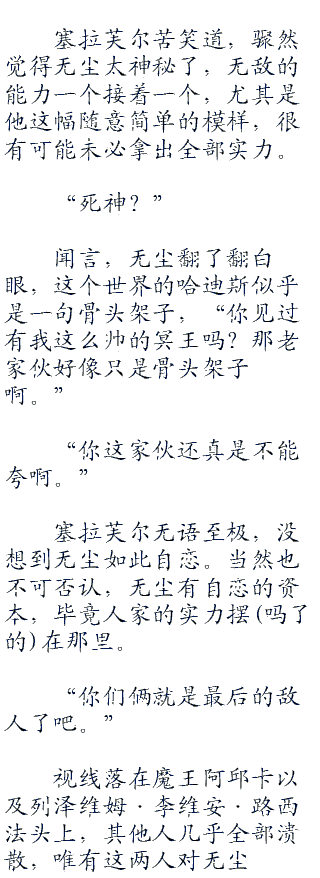 塞拉芙尔苦笑道，骤然
觉得无尘太神秘了，无敌的
能力一个接着一个，尤其是
他这幅随意简单的模样，很
有可能未必拿出全部实力。
“死神？”
闻言，无尘翻了翻白
眼，这个世界的哈迪斯似乎
是一句骨头架子，“你见过
有我这么帅的冥王吗？那老
家伙好像只是骨头架子
啊。”
“你这家伙还真是不能
夸啊。”
塞拉芙尔无语至极，没
想到无尘如此自恋。当然也
不可否认，无尘有自恋的资
本，毕竟人家的实力摆(吗了
的)在那里。
“你们俩就是最后的敌
人了吧。”
视线落在魔王阿邱卡以
及列泽维姆·李维安·路西
法头上，其他人几乎全部溃
散，唯有这两人对无尘